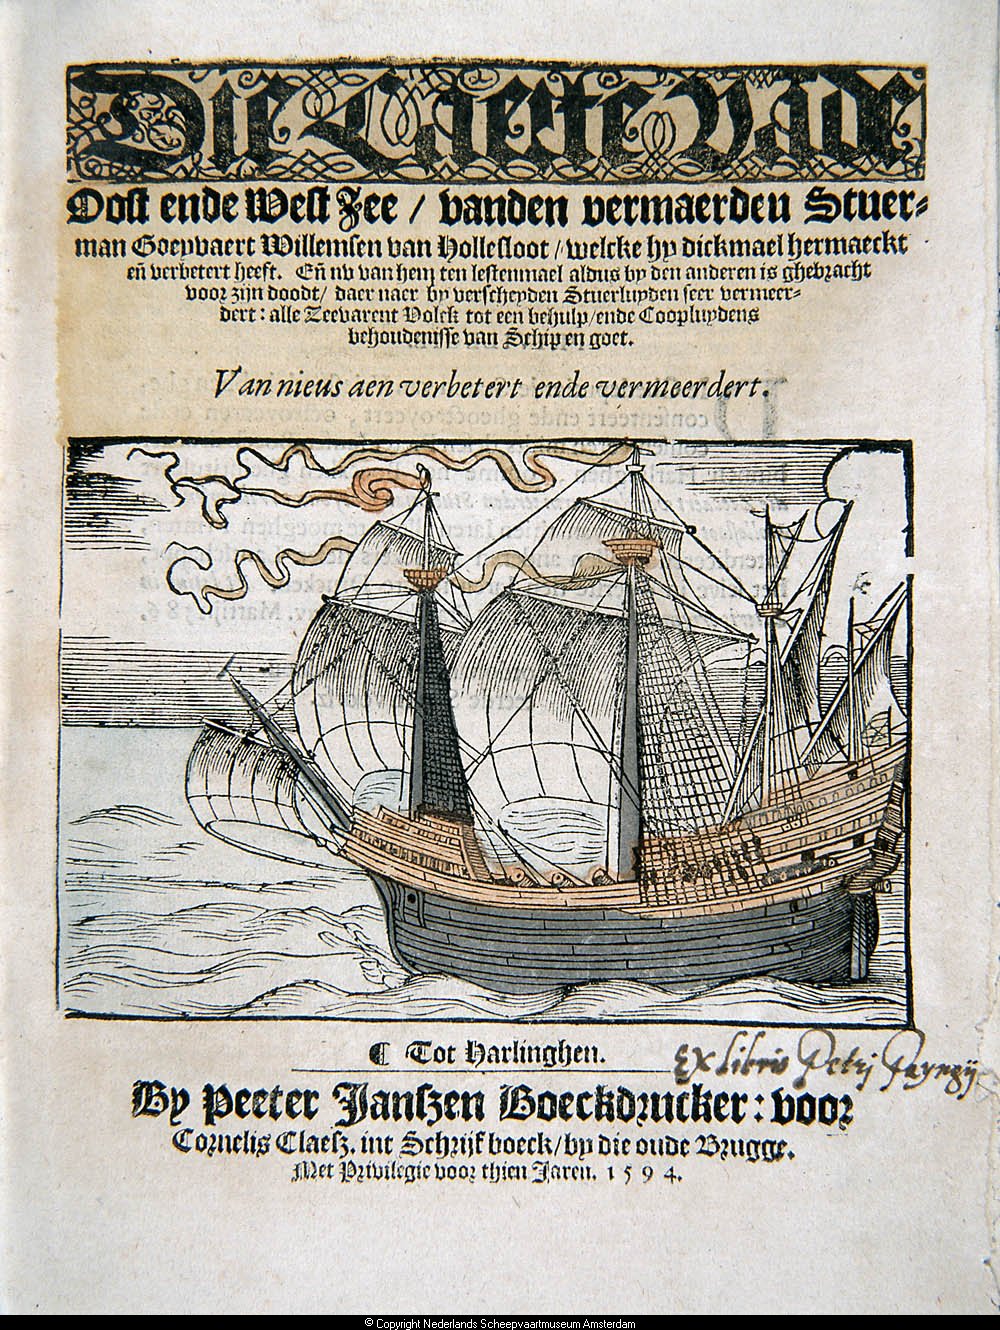 Die Caerte vande
Oost ende West Zee / vanden vermaerden Stuer-
man Goeyvaert Willemsen van Hollesloot / welcke hy dickmael hermaeckt
eñ verbetert heeft. Eñ nv van hem ten lestenmael aldus by den anderen is ghebracht
voor zijn doodt / daer naer by verscheyden Stuerluyden seer vermeer-
dert: alle Zeevarent Volck tot een behulp / ende Coopluydens
behoudenisse van Schip en goet.
Van nieus aen verbetert ende vermeerdert.
Tot Harlinghen.
Ex libris Petri
By Peeter Janszen Boeckdrucker: voor
Cornelis Claesz. int Schrijf boeck / by die oude Brugge.
Met Privilegie voor thien Jaren. 1594.
© Copyright Nederlands Scheepvaartmuseum Amsterdam